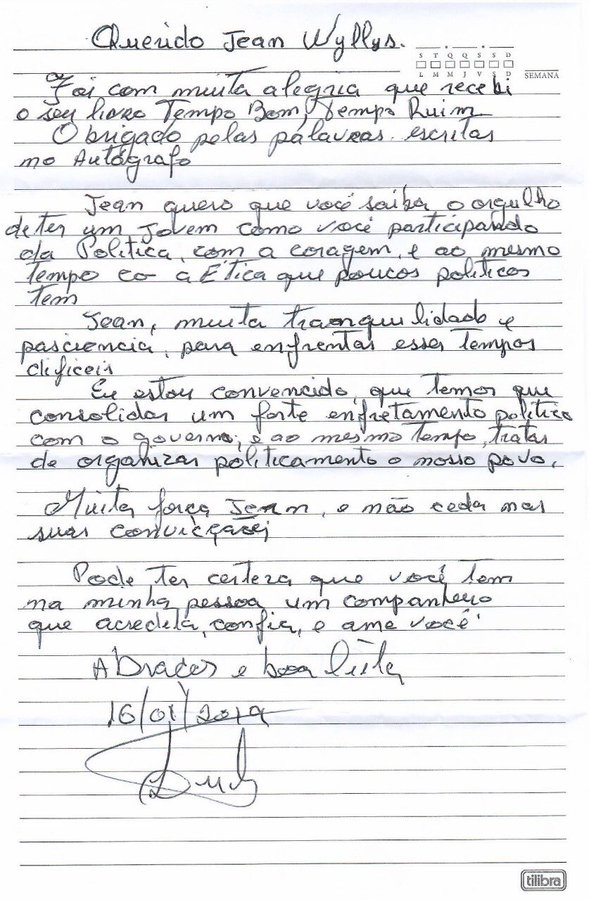 Querido Jean Wyllys.
S T Q Q S S D
L M M J V S D
SEMANA
Foi com muita alegria que recebi
o seu livro Tempo Bom, Tempo Ruim
Obrigado pelas palavras escritas
no Autógrafo
Jean quero que você saiba o orgulho
de ter um jovem como você participando
da Politica, com a coragem, e ao mesmo
tempo co a Ética que poucos politicos
tem
Jean, muita tranquilidade e
pasciencia, para enfrentar esses tempos
dificeis
Eu estou convencido, que temos que
consolidar um forte enfretamento politico
com o governo, e ao mesmo tempo, tratar
de organizar politicamento o nosso povo.
Muita força Jean, e não ceda nas
suas convicções
Pode ter certeza que você tem
na minha pessoa um companheiro
que acredita, confia, e ama você
Abraços e boa luta
16/01/2019
tilibra